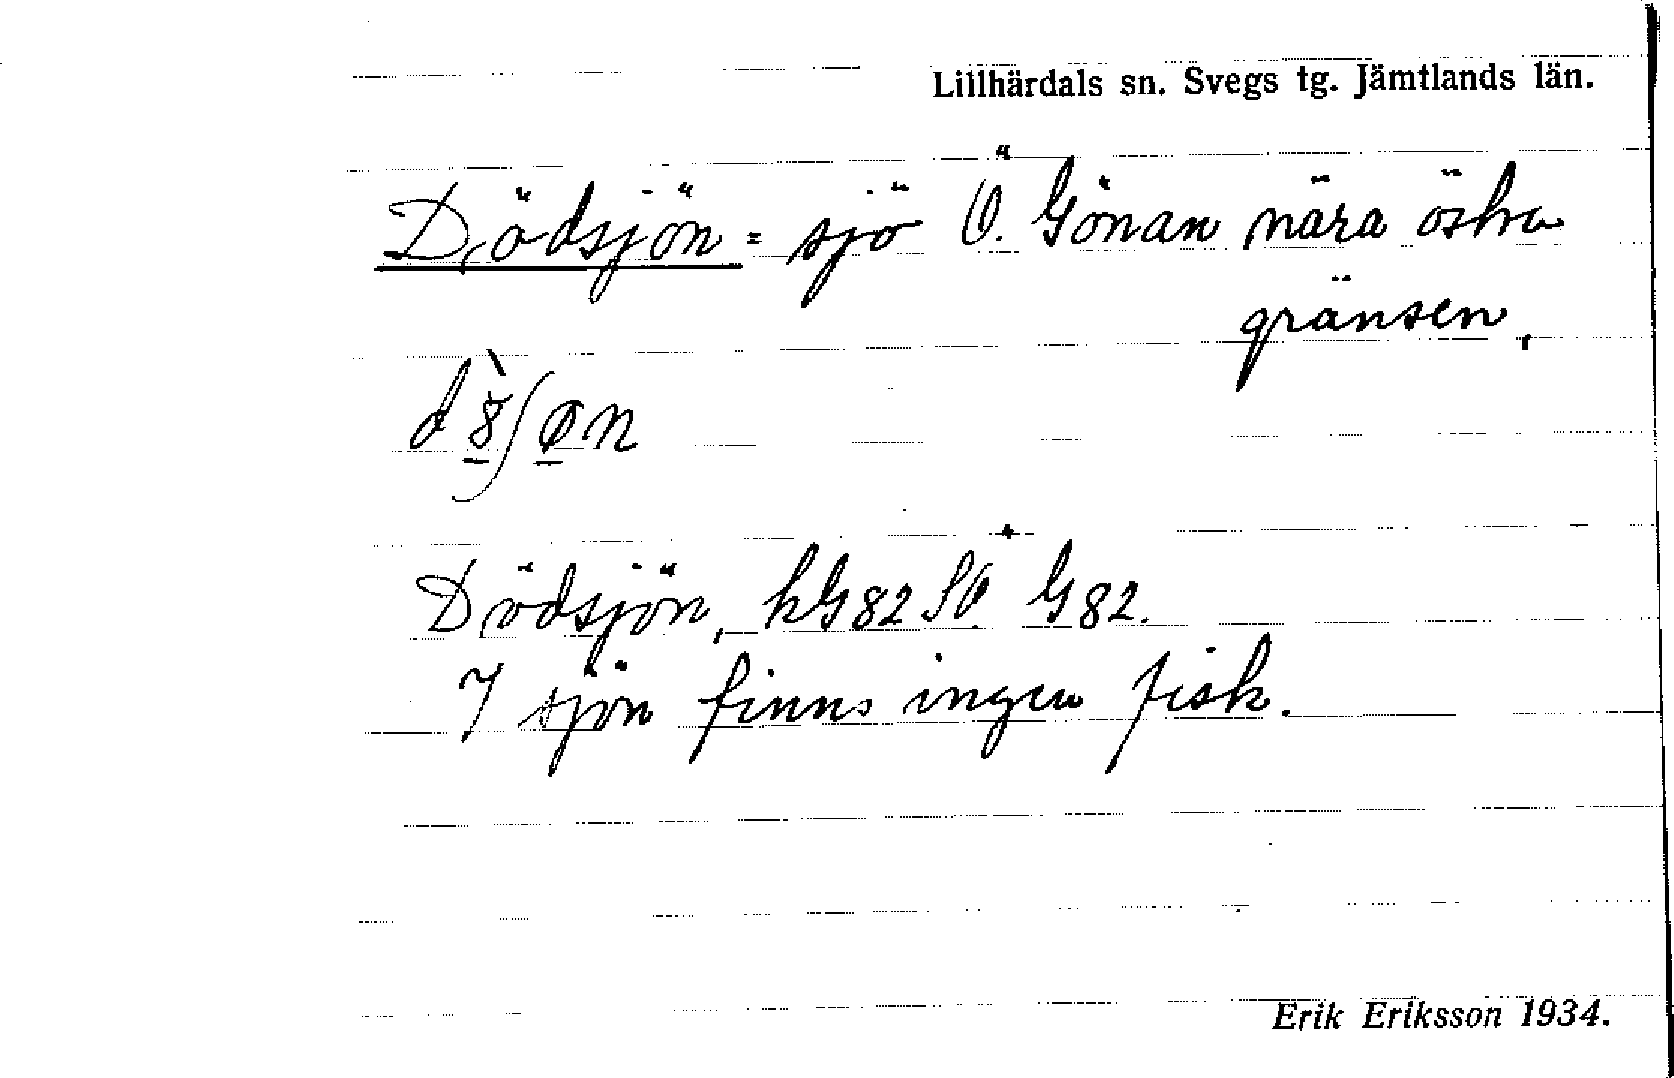 Lillhärdals sn. Svegs tg. Jämtlands län.
Dödsjön = sjö Ö. Gönan nära östra
gränsen.
Dödsjön, kG82 SÖ G82.
I sjön finns ingen fisk.
Erik Eriksson 1934.